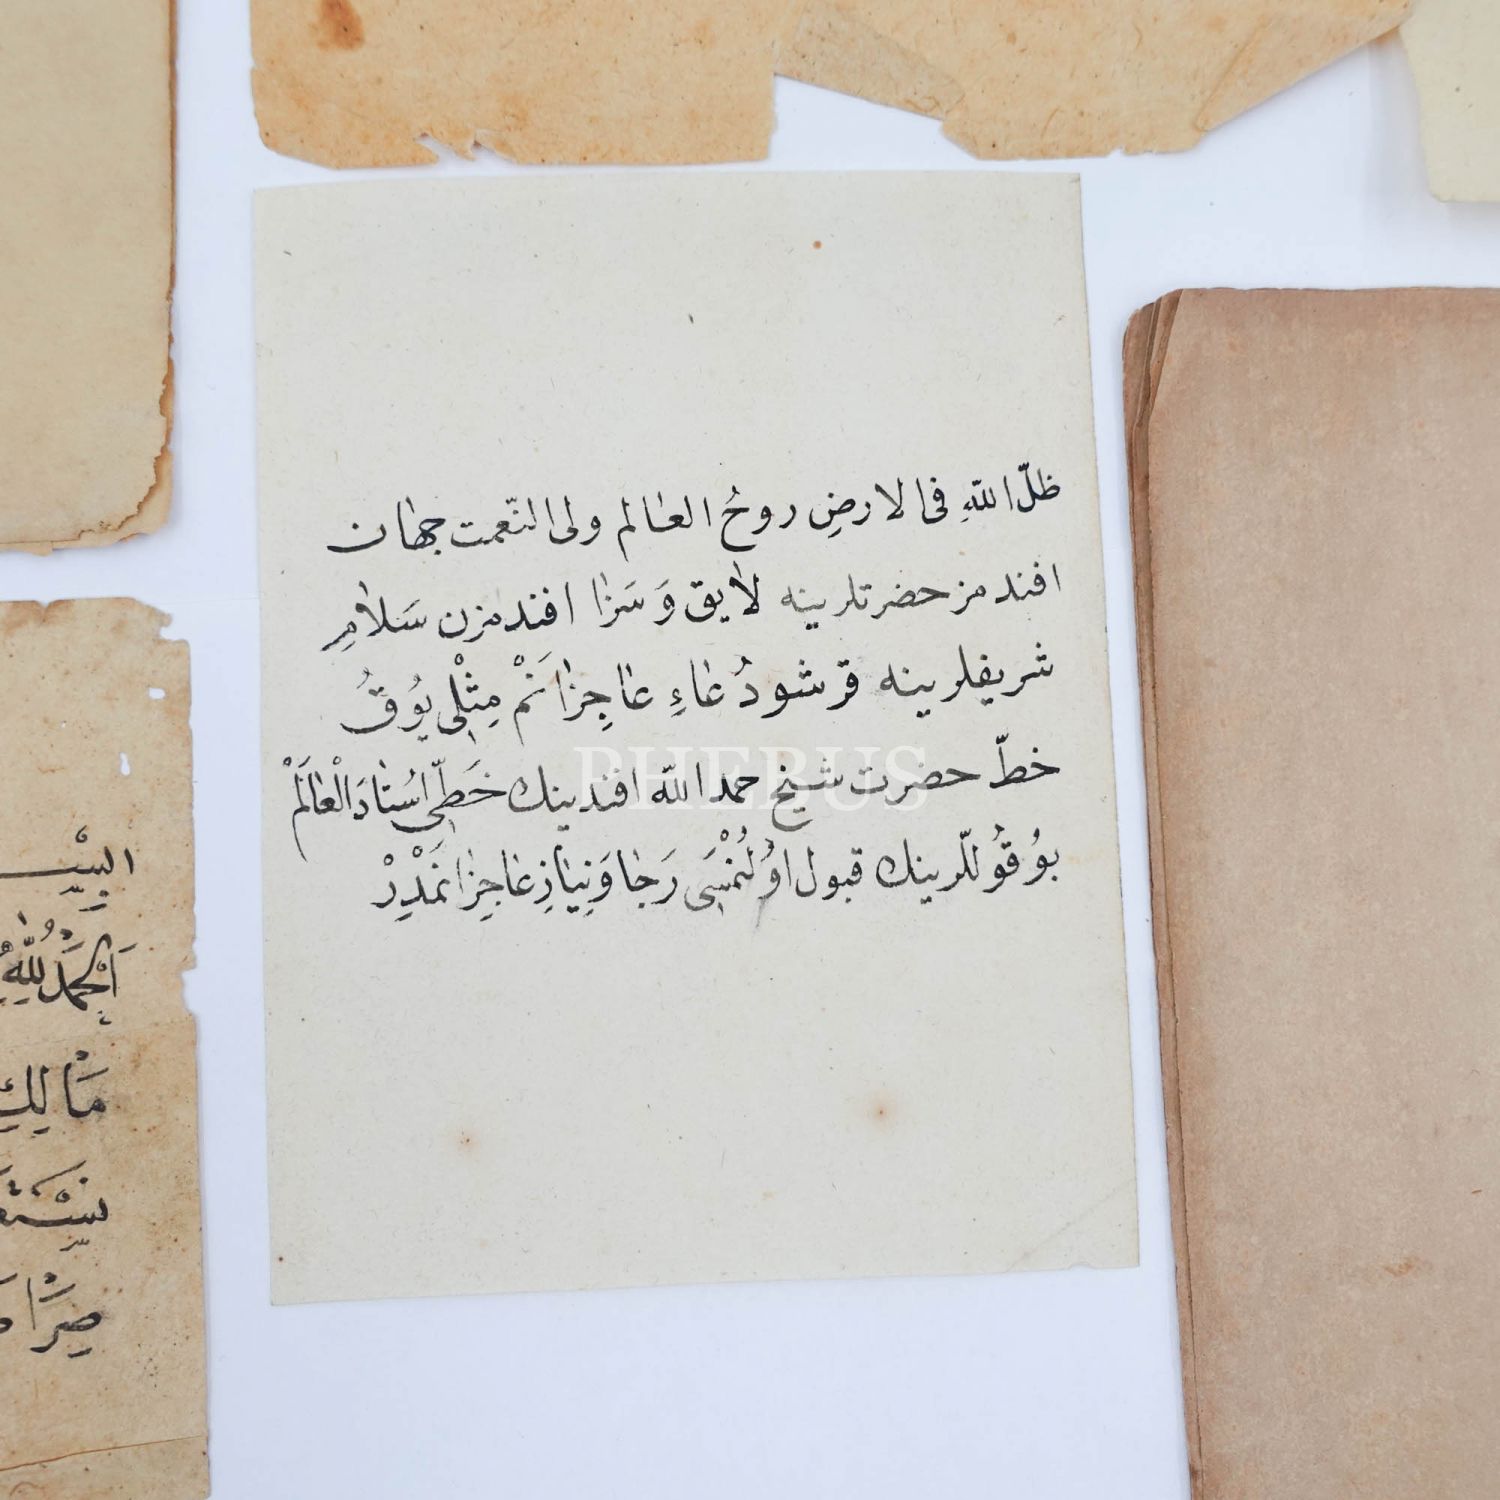 ظلّ اللهِ فى الارضِ روحُ العالم ولى النّعمت جهان
افندمز حضرتلرينه لايق وَ سَزا افندمزن سَلامِ
شريفلرينه قرشو دُعاءِ عاجِزانَمْ مِثْلِى يُوقُ
خطّ حضرت شيخ حمد الله افندينك خَطِّى اُستادَ الْعالَمْ
بُوقُوللّرينك قبول اوُلُنمْسَى رَجا وَنِيازِ عاجِزانمَدِرْ
PHEBUS
البِسْ
اَلْحَمْدُ لِلّٰهِ
مَالِكِ
نَسْتَعِ
صِرَاطَ